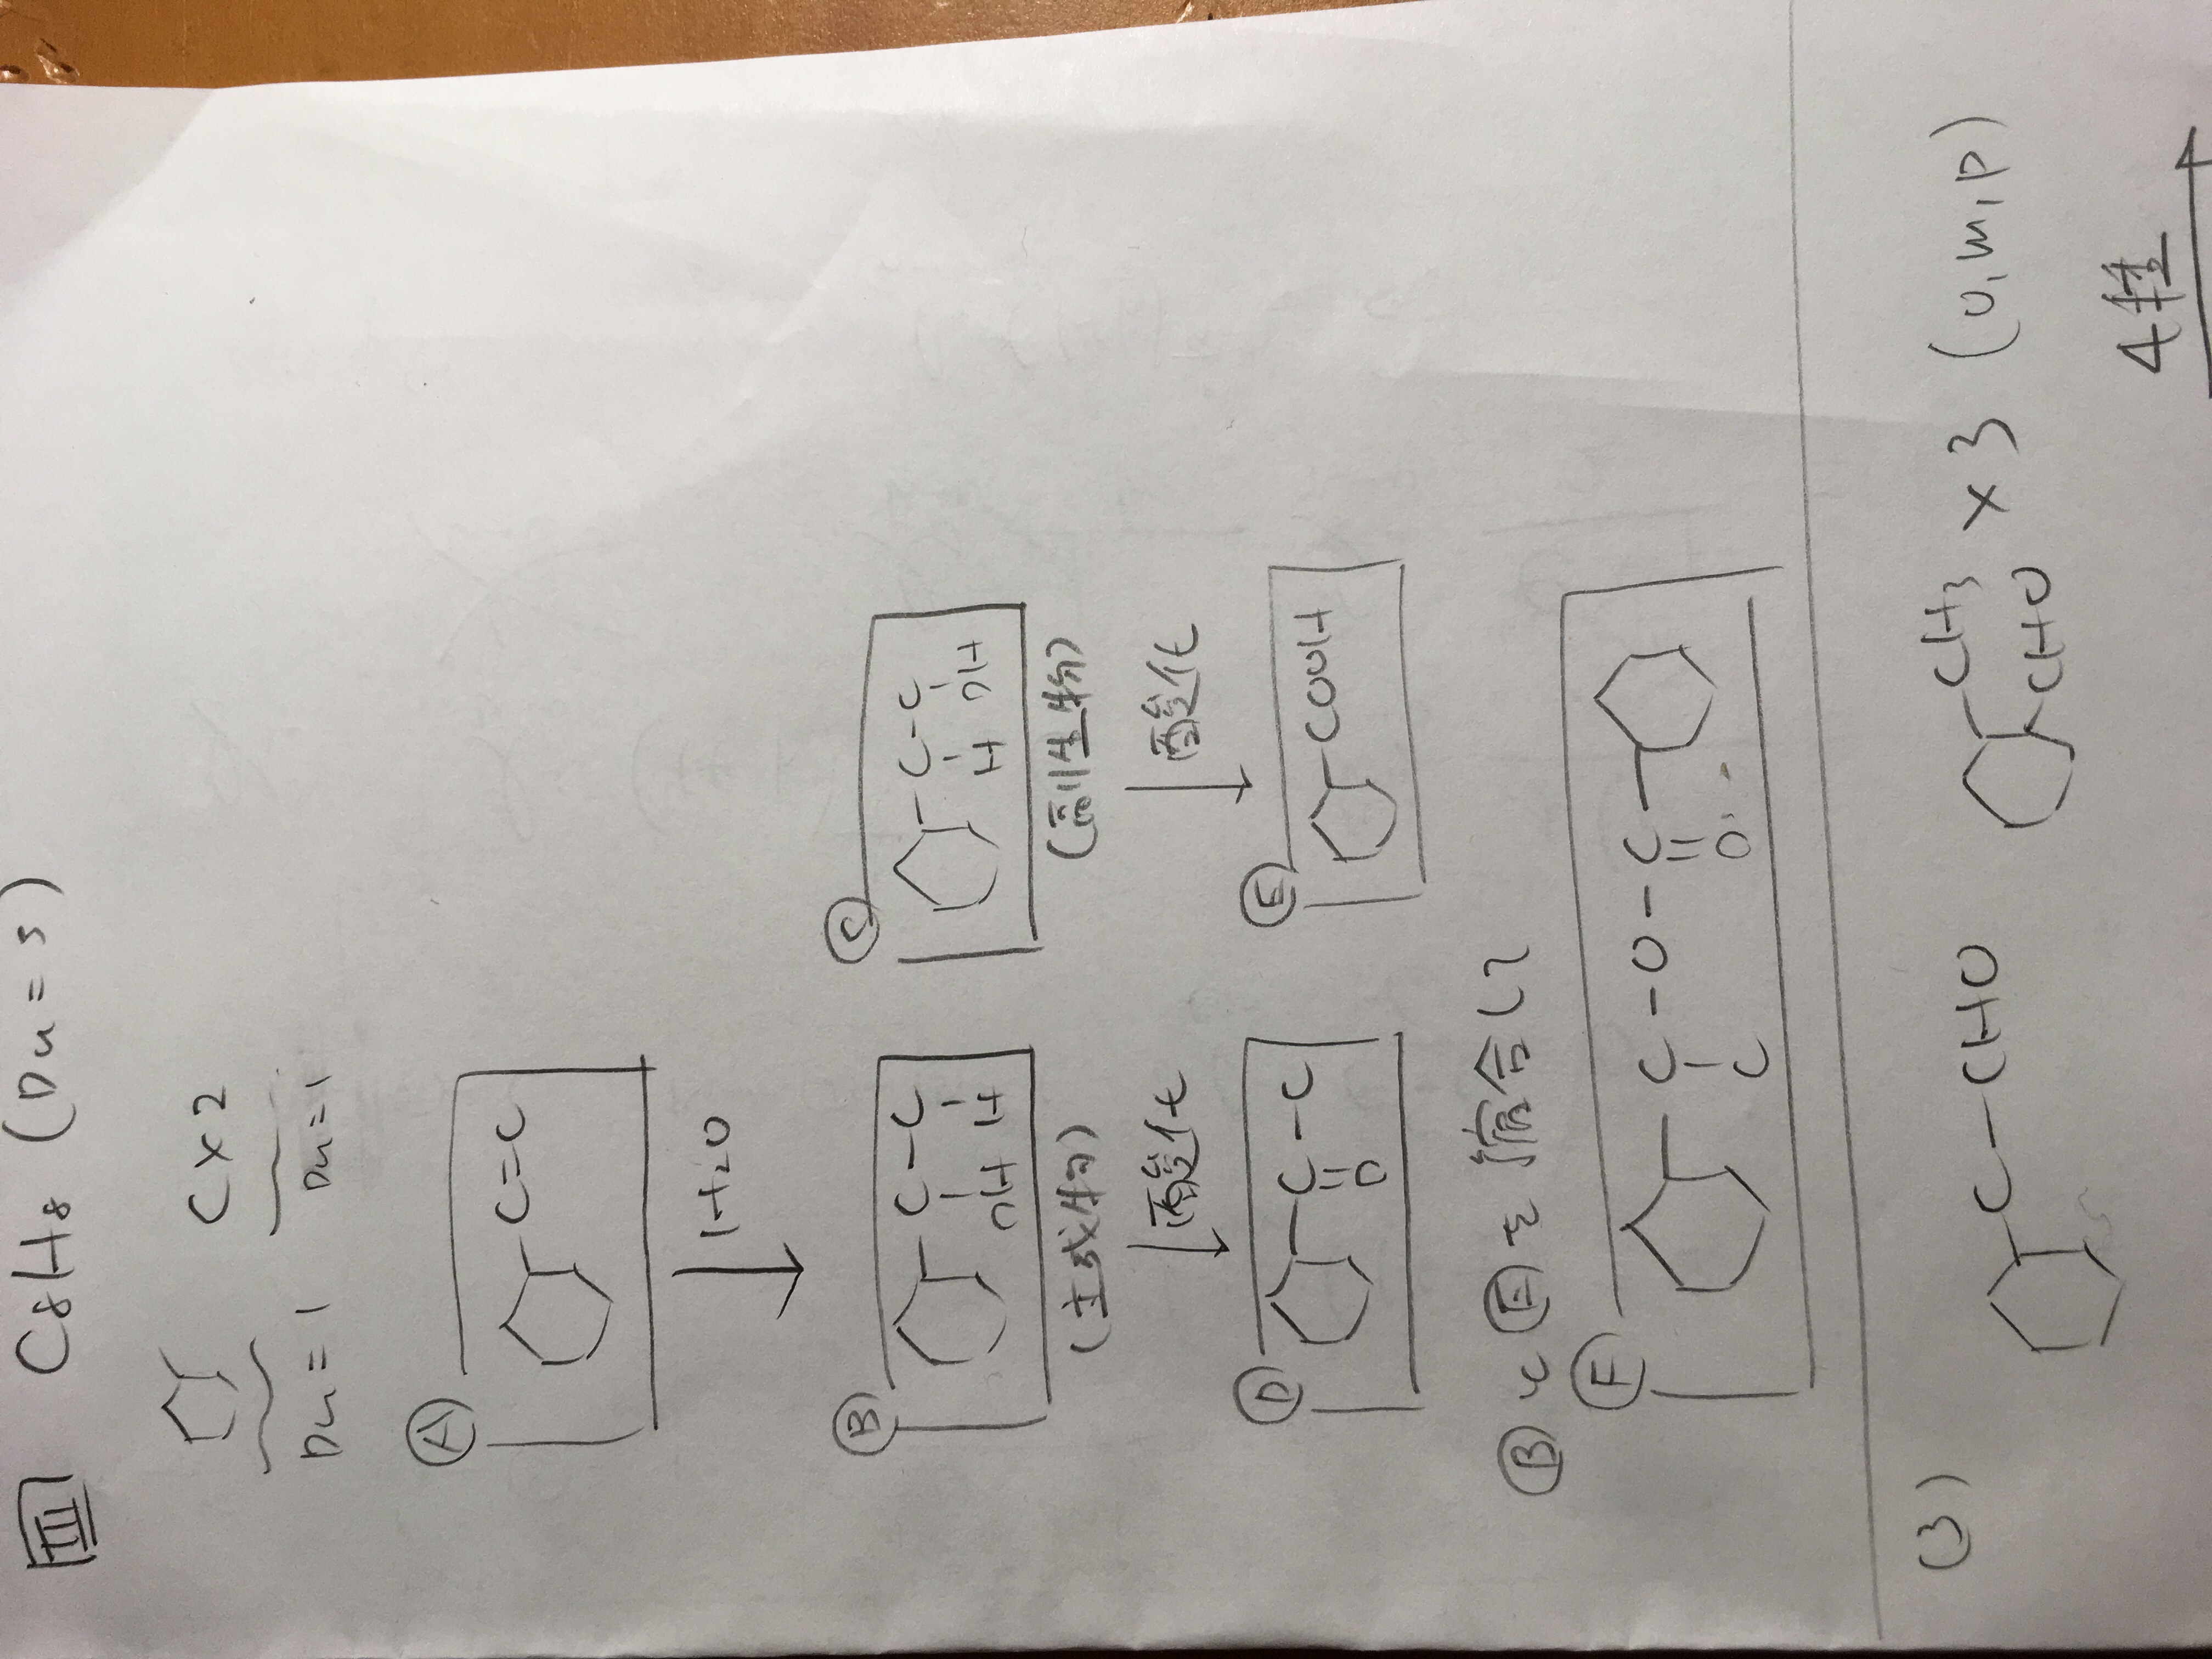 III C8H8 (Du=5)
C×2
Du=1 Du=1
A
C=C
H2O
B C
C-C C-C
OH H H OH
(主成分) (副生成分)
酸化 酸化
D E
C-C COOH
O
BとEを縮合して
F
C-O-C
C O
(3) C-CHO CH3 ×3 (o,m,p)
CHO
4種